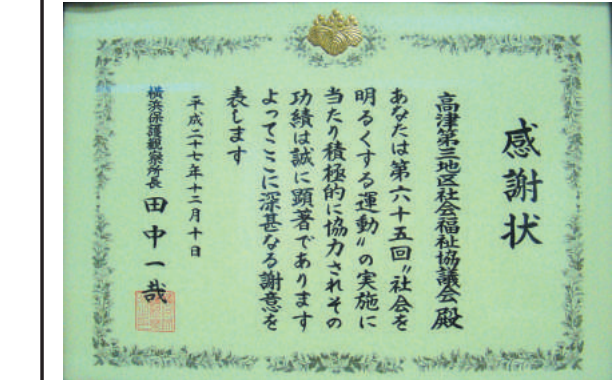 感謝状
高津第三地区社会福祉協議会殿
あなたは第六十五回〝社会を
明るくする運動〟の実施に
当たり積極的に協力されその
功績は誠に顕著であります
よってここに深甚なる謝意を
表します
平成二十七年十二月十日
横浜保護観察所長 田中一哉